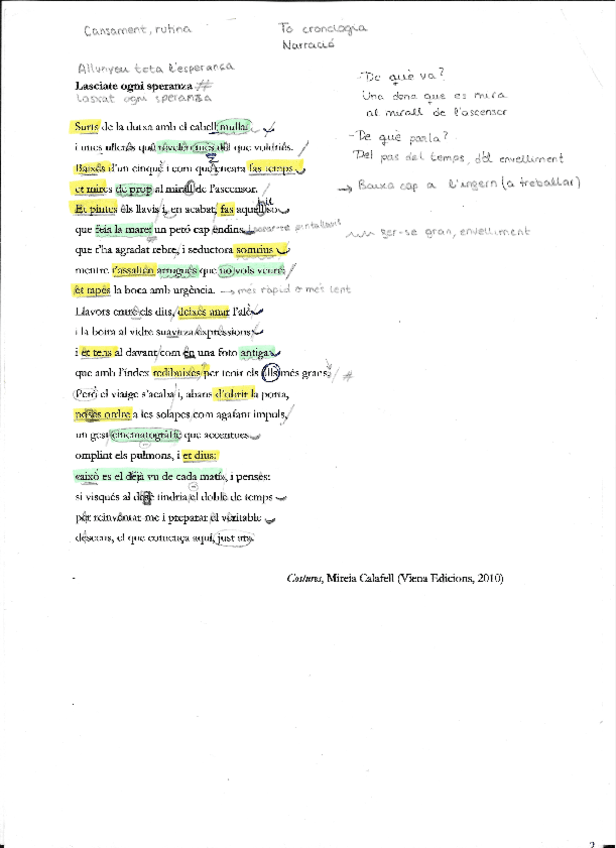 Cansament, rutina
To cronologia
Narració
Allunyeu tota l'esperança
Lasciate ogni speranza #
Lasxat ogni speranza
-De què va?
Una dona que es mira
al mirall de l'ascensor
-De què parla?
Del pas del temps, d'el envelliment
→ Baixa cap a l'infern (a treballar)
fer-se gran, envelliment
Surts de la dutxa amb el cabell mullat
i unes ulleres què revelen més del que voldries.
Baixes d'un cinquè i com que encara fas temps
et mires de prop al mirall de l'ascensor.
Et pintes els llavis i, en acabat, fas aquell so
que feia la mare, un però cap endins,
que t'ha agradat rebre, i seductora somrius
mentre t'assalten arrugues que no vols veure:
et tapes la boca amb urgència. → més ràpid o més lent
Llavors entre els dits, deixes anar l'alè
i la boira al vidre suavitza expressions
i et tens al davant com en una foto antiga
que amb l'índex redibuixes per tenir els ulls més grans. / #
Però el viatge s'acaba i, abans d'obrir la porta,
poses ordre a les solapes com agafant impuls,
un gest cinematogràfic que accentues
omplint els pulmons, i et dius:
això es el déjà vu de cada matí, i penses:
si visqués al desè tindria el doble de temps
per reinventar-me i preparar el veritable
descens, el que comença aquí, just ara.
Costures, Mireia Calafell (Viena Edicions, 2010)
2